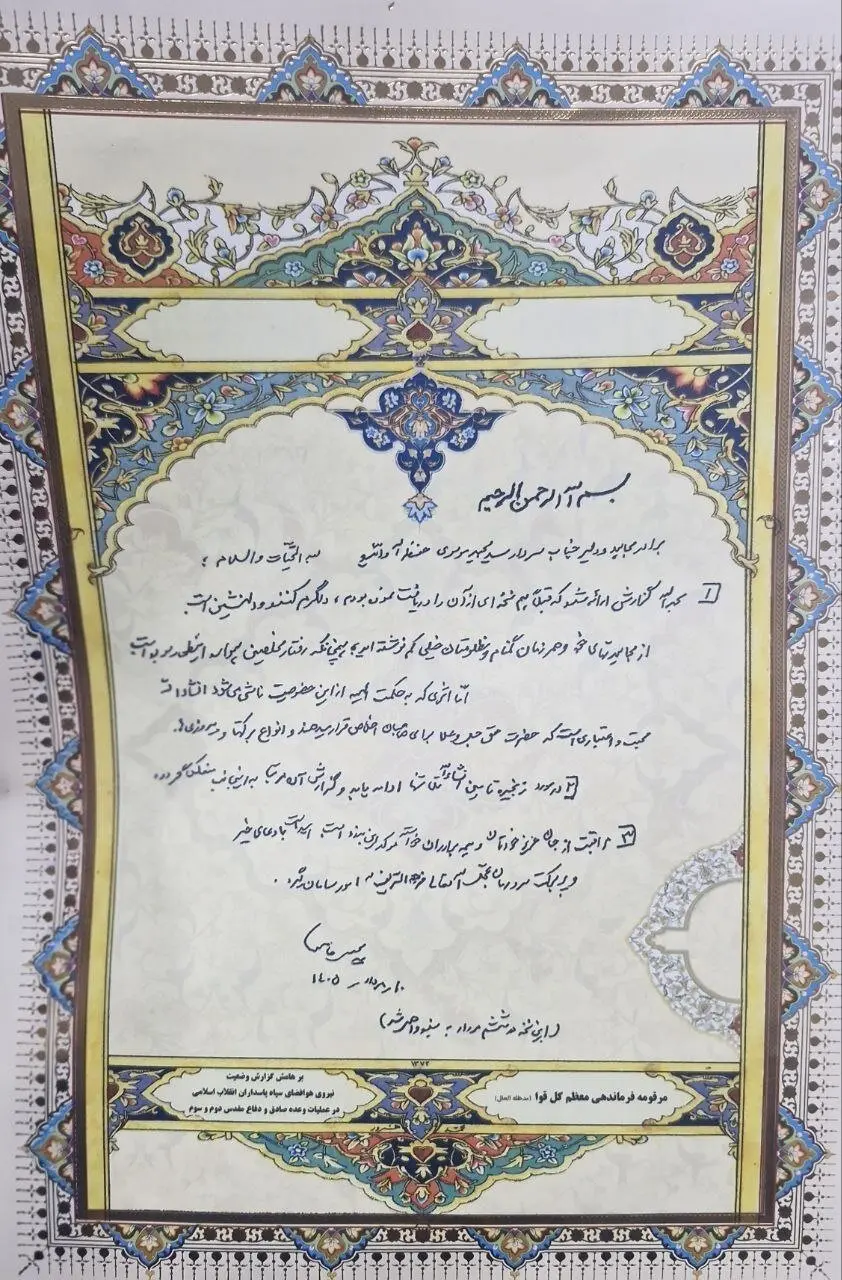 بسم الله الرحمن الرحیم
برادر مجاهد و دلیر جناب سردار سید مجید موسوی حفظه الله و ابقیه له التحیّات والسلام ؛
۱ بحمدالله گزارش ارائه شده که قبلاً هم نسخه ای از آن را دریافت نموده بودم ، دلگرم کننده و دلنشین است
از مجاهدتهای خود و همرزمان گمنام و مظلومتان خیلی کم نوشته اید؛ همچنانکه رفتار مخلصین همواره اینطور بوده است
امّا اثری که به حکمت الهیه از این خصوصیت ناشی می‌شود انشاءالله
محبت و اعتباری است که حضرت حق جل و علا برای صاحبان اخلاص قرار میدهند و انواع برکات و پیروزی‌ها.
۲ در مورد زنجیره تامین انشاءالله تلاشها ادامه یابد و گزارش آن مرتبا به اینجانب منعکس گردد
۳ مراقبت از جان عزیز خودتان و همه برادران خواسته مؤکد این بنده است. امید است با دعای خیر
و به برکت سرورمان عجّل الله تعالی فرجه الشریف امور سامان گیرد .
۱۰ مرداد ۱۴۰۵
(این نسخه در ششم مرداد به بنده واصل شد)
۱۳۷۲
مرقومه فرماندهی معظم کل قوا (مدظله العالی)
بر هامش گزارش وضعیت
نیروی هوافضای سپاه پاسداران انقلاب اسلامی
در عملیات وعده صادق و دفاع مقدس دوم و سوم